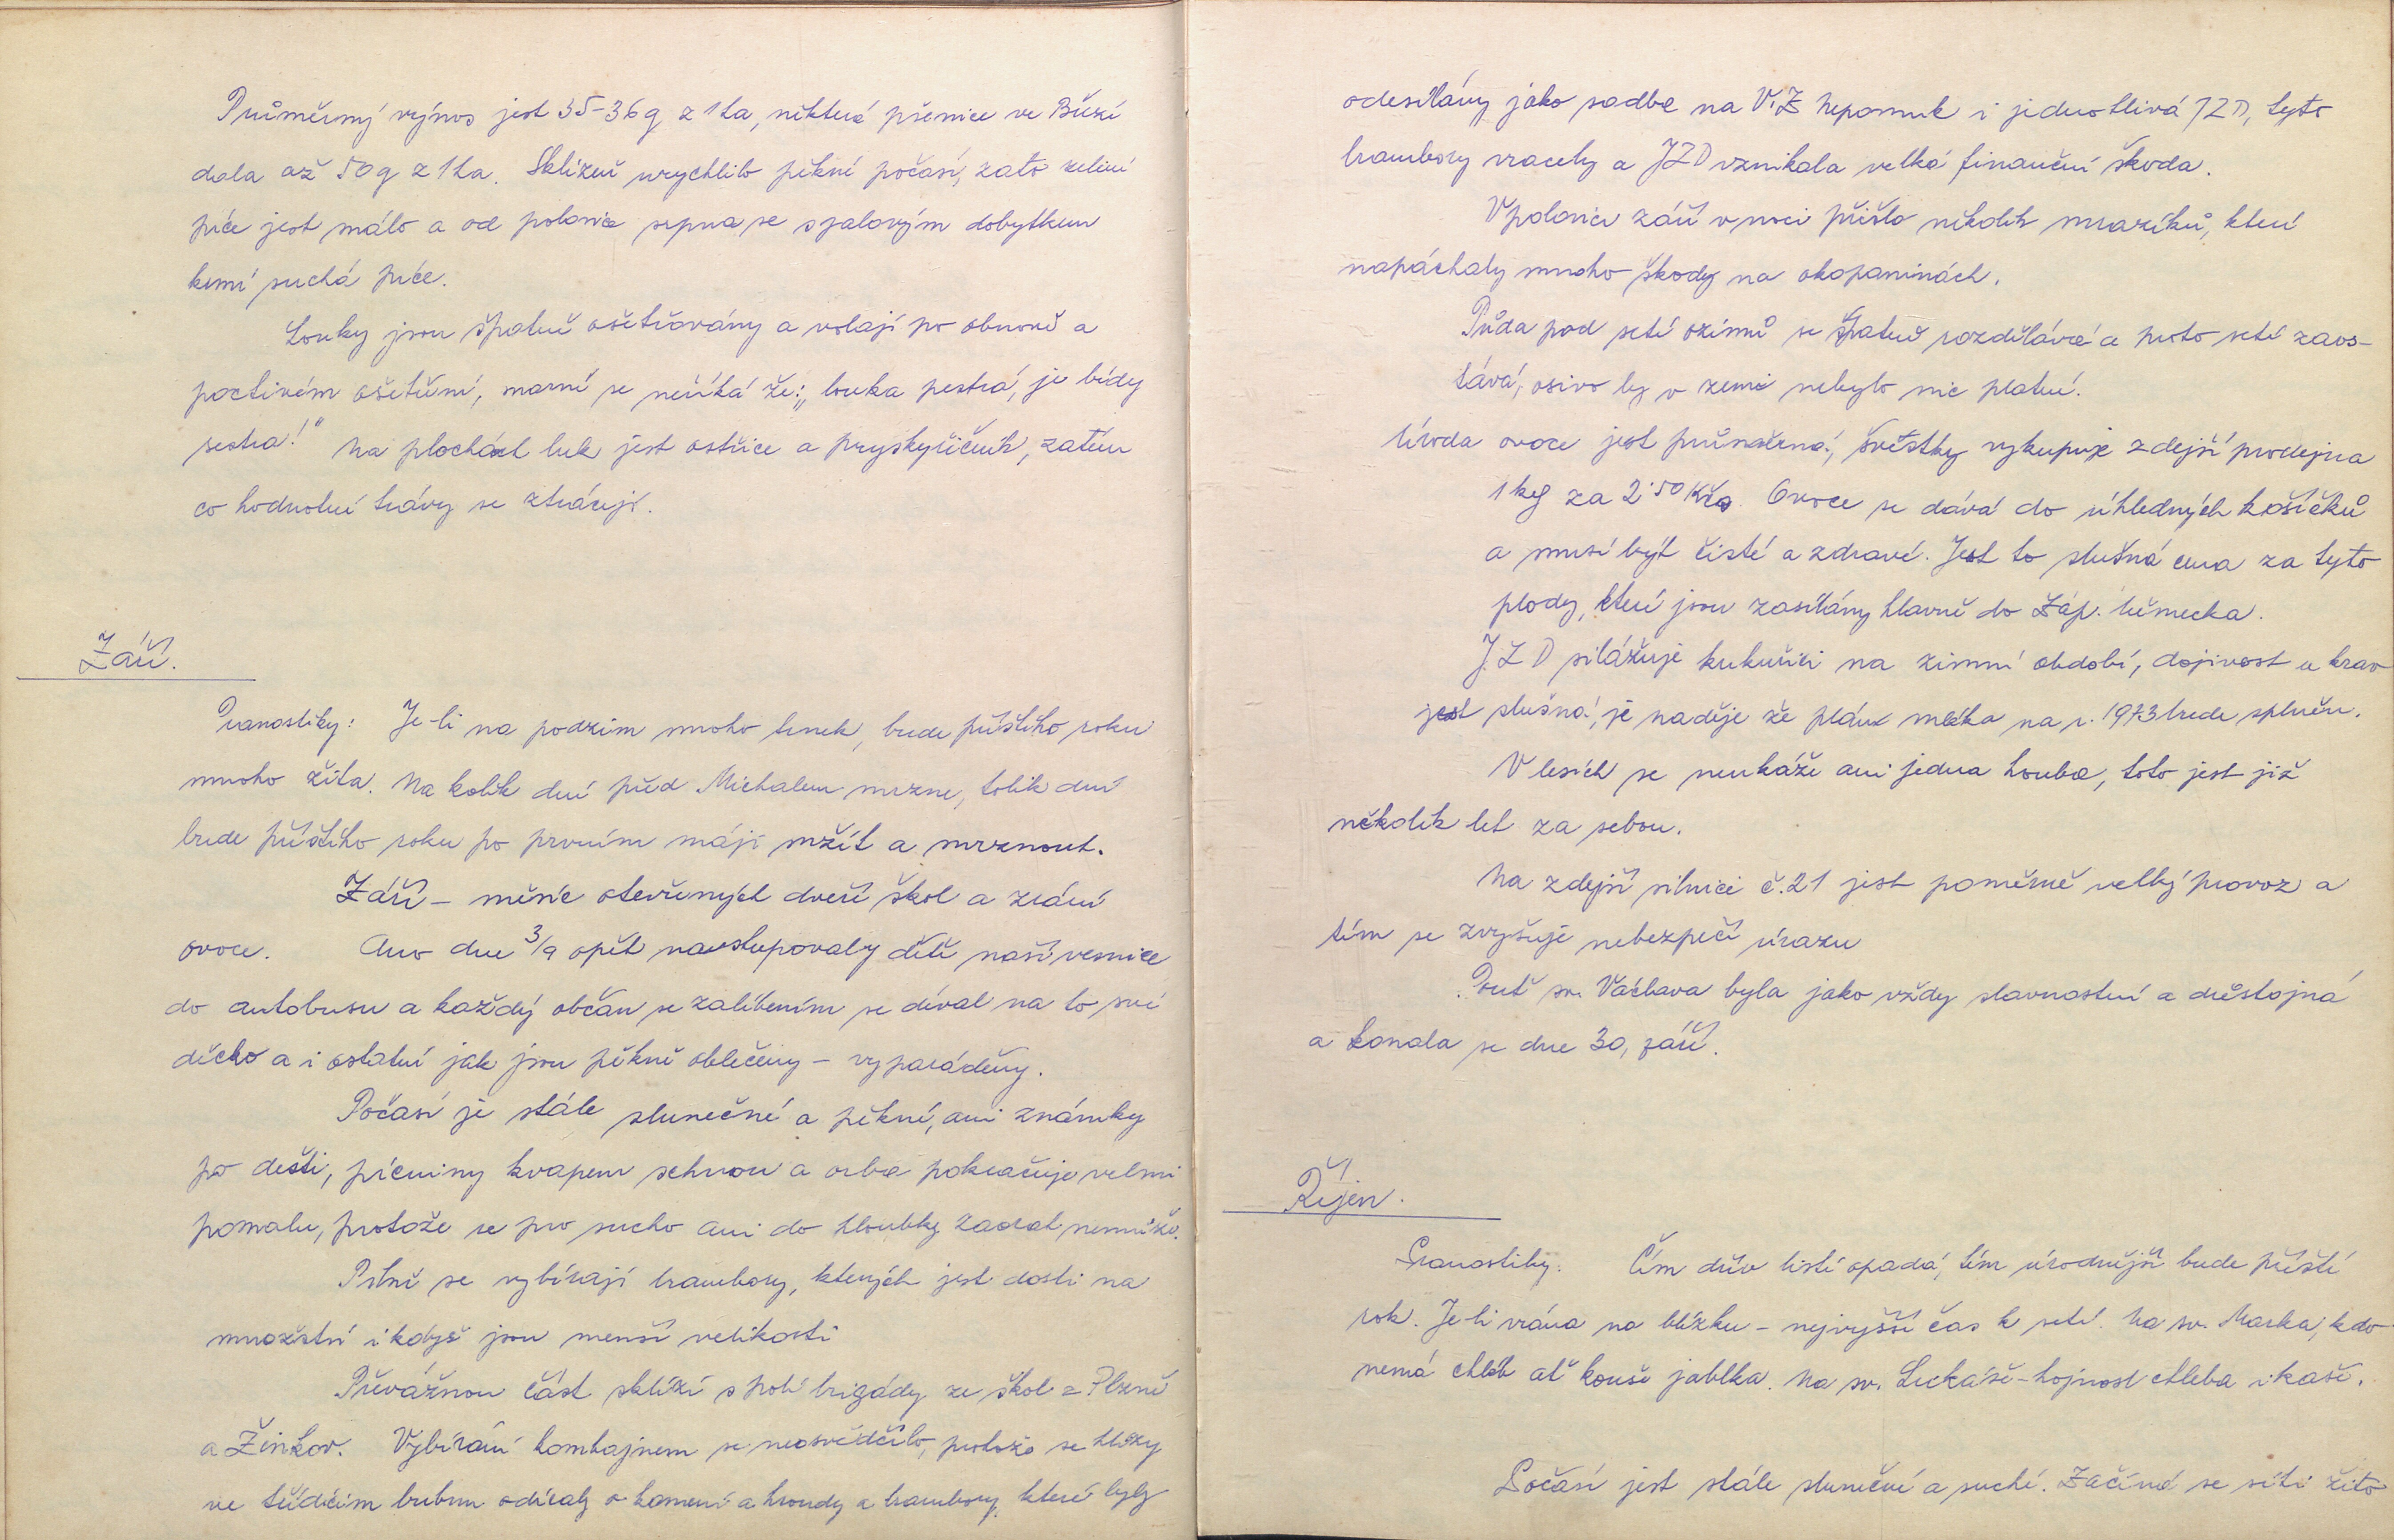 Průměrný výnos jest 35-36 q z 1 ha, některá pšenice ve Březí
dala až 50 q z 1 ha. Sklizeň urychlilo pěkné počasí, zato zelené
píce jest málo a od polovice srpna se s jalovým dobytkem
krmí suchá píce.
Louky jsou špatně ošetřovány a volají po obnově a
poctivém ošetření, marně se neříká že: „louka pestrá, je bídy
sestra!" Na plochách luk jest ostřice a pryskyřičník, zatím
co hodnotné trávy se ztrácejí.
Září.
Pranostiky: Je-li na podzim mnoho trnek, bude příštího roku
mnoho žita. Na kolik dní před Michalem mrzne, tolik dní
bude příštího roku po prvním máji mžít a mrznout.
Září - měsíc otevřených dveří škol a zrání
ovoce. Ano dne 3/9 opět nastupovaly děti naší vesnice
do autobusu a každý občan se zalíbením se díval na to své
děcko a i ostatní jak jsou pěkně oblečeny - vyparáděny.
Počasí je stále slunečné a pěkné, ani známky
po dešti, pícniny kvapem schnou a orba pokračuje velmi
pomalu, protože se pro sucho ani do hloubky zaorat nemůže.
Pilně se vybírají brambory, kterých jest dosti na
množství i když jsou menší velikosti
Převážnou část sklízí s polí brigády ze škol z Plzně
a Žinkov. Vybírání kombajnem se neosvědčilo, protože se hlízy
ve třídícím bubnu odíraly o kamení a hroudy a brambory, které byly
odesílány jako sadba na VÍZ Nepomuk i jednotlivá JZD, tyto
brambory vracely a JZD vznikala velká finanční škoda.
V polovici září v noci přišlo několik mrazíků, které
napáchaly mnoho škody na okopaninách.
Půda pod setí ozimů se špatně rozdělává a proto setí zaos-
tává, osivo by v zemi nebylo nic platné.
Úroda ovoce jest průměrná, švestky vykupuje zdejší prodejna
1 kg za 2·50 Kčs. Ovoce se dává do úhledných košíčků
a musí být čisté a zdravé. Jest to slušná cena za tyto
plody, které jsou zasílány hlavně do Záp. Německa.
JZD silážuje kukuřici na zimní období, dojivost u krav
jest slušná, je naděje že plán mléka na r. 1973 bude splněn.
V lesích se neukáže ani jedna houba, toto jest již
několik let za sebou.
Na zdejší silnici č. 21 jest poměrně velký provoz a
tím se zvyšuje nebezpečí úrazu
Pouť sv. Václava byla jako vždy slavnostní a důstojná
a konala se dne 30, září.
Říjen.
Pranostiky. Čím dřív listí opadá, tím úrodnější bude příští
rok. Je-li vrána na blízku - nejvyšší čas k setí. Na sv. Marka, kdo
nemá chléb ať kouše jablka. Na sv. Lukáše - hojnost chleba i kaše.
Počasí jest stále slunečné a suché. Začíná se síti žito